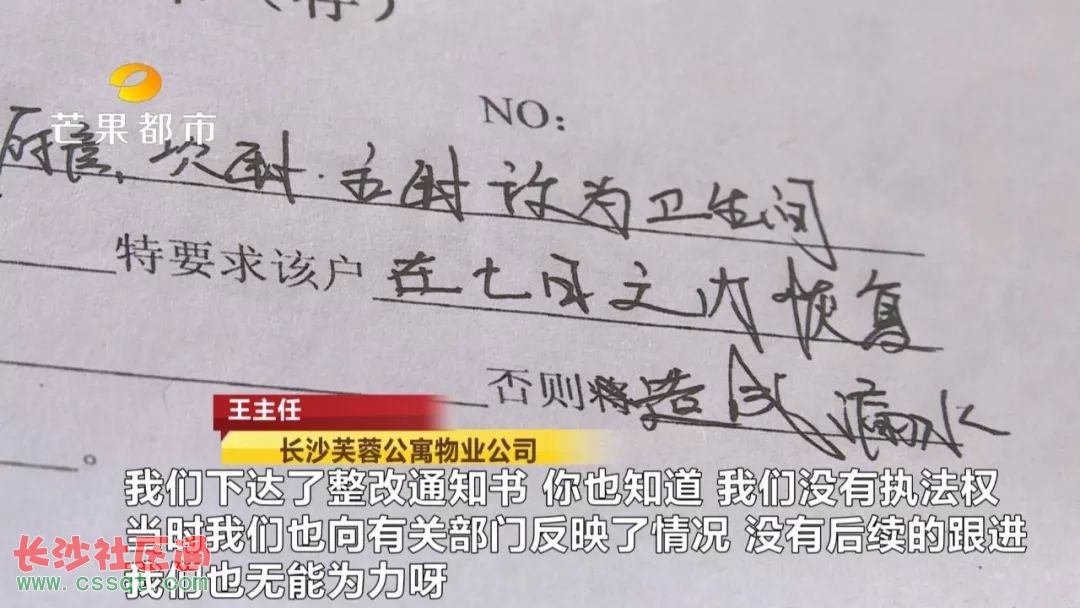 (存)
芒果都市
NO:
厨信，次卧．主卧 设为卫生间
特要求该户 在七日之内 恢复
否则将造成 漏水
。
王主任
长沙芙蓉公寓物业公司
我们下达了整改通知书 你也知道 我们没有执法权
当时我们也向有关部门反映了情况 没有后续的跟进
我们也无能为力呀
长沙社区通
www.cssqt.com